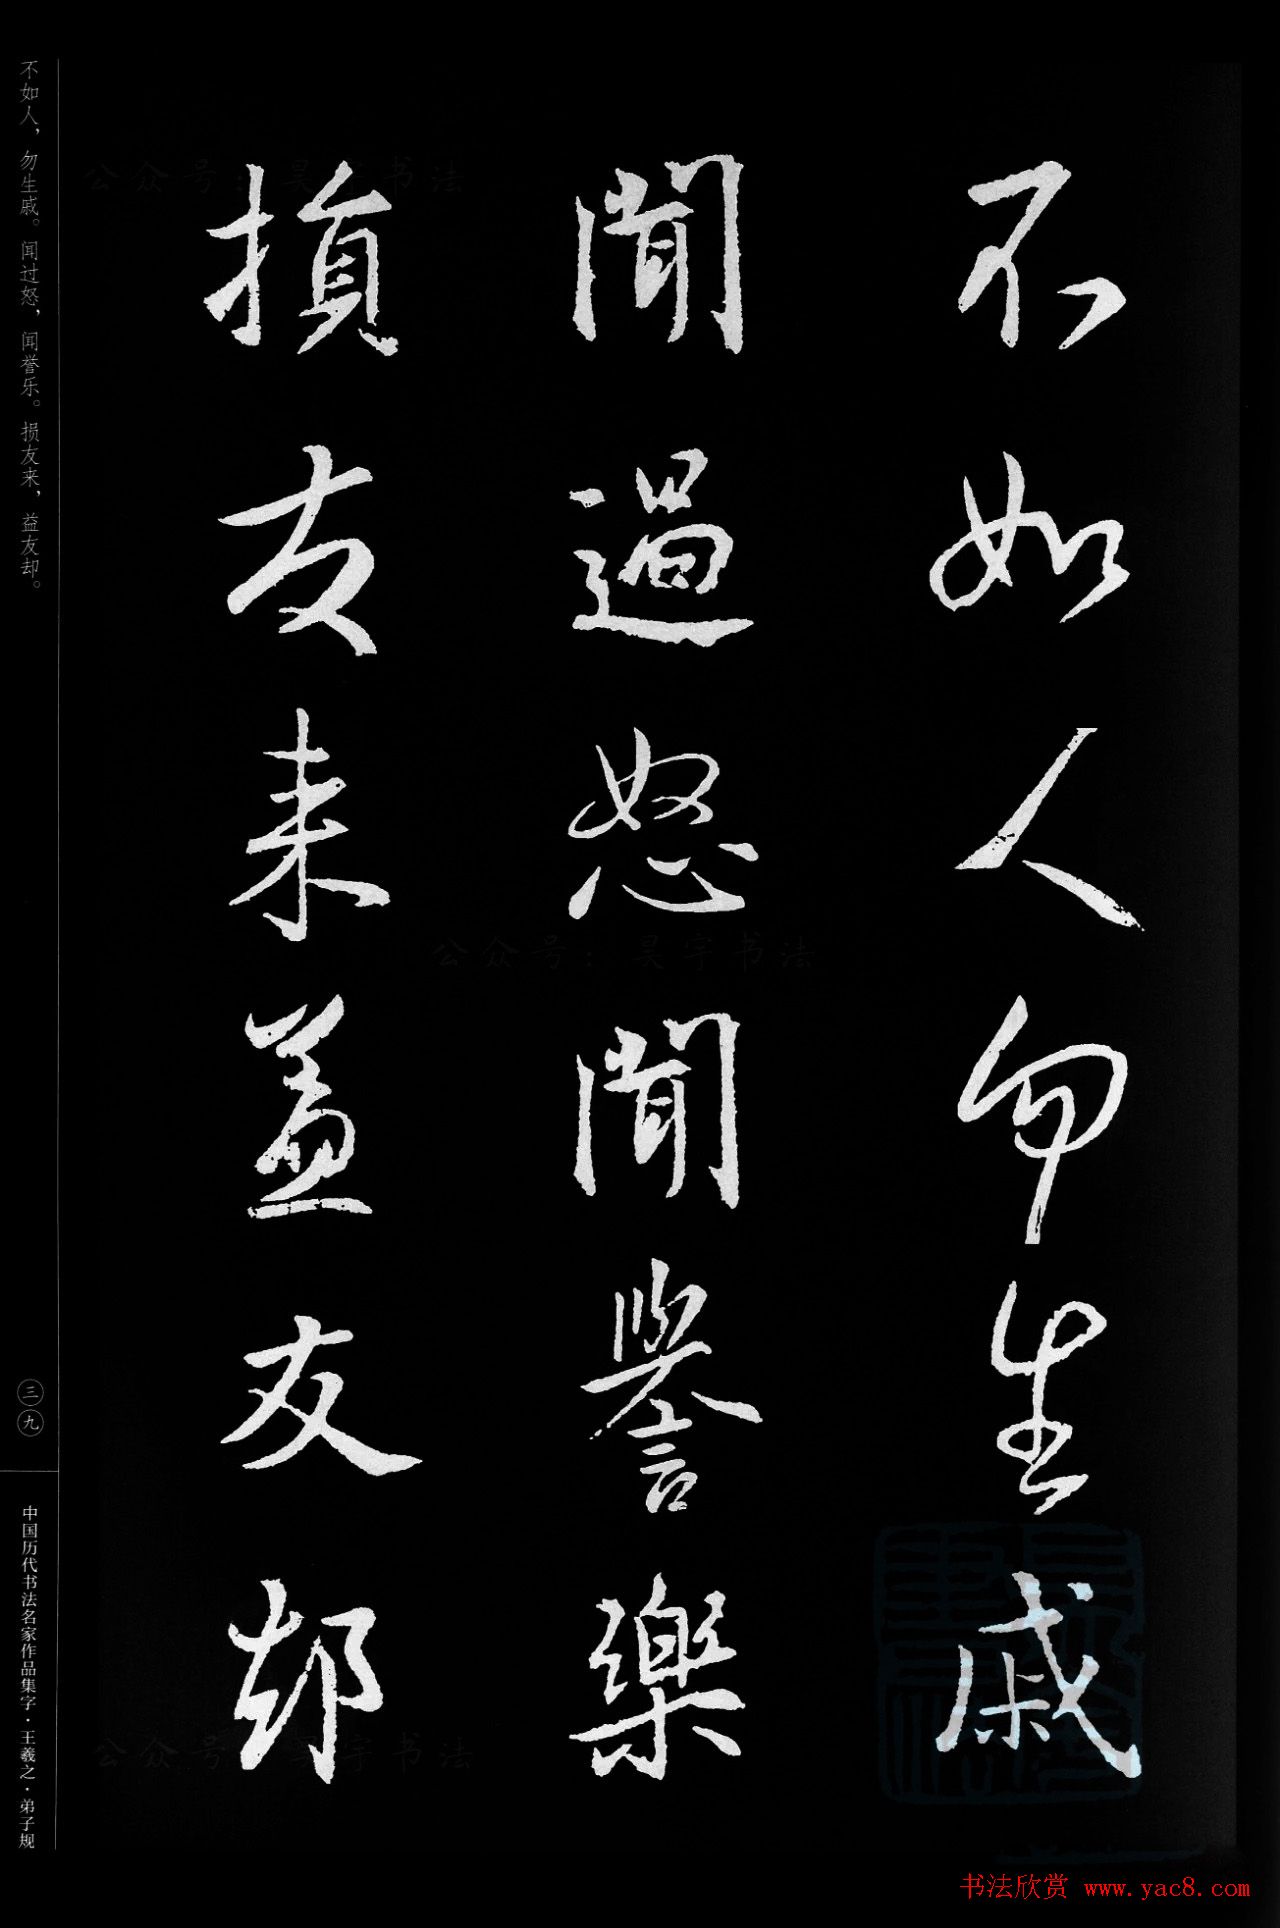 不如人勿生戚
聞過怒聞譽樂
損友来益友却
不如人，勿生戚。闻过怒，闻誉乐。损友来，益友却。
三九
中国历代书法名家作品集字·王羲之·弟子规
公众号：昊宇书法
公众号：昊宇书法
公众号：昊宇书法
书法欣赏 www.yac8.com